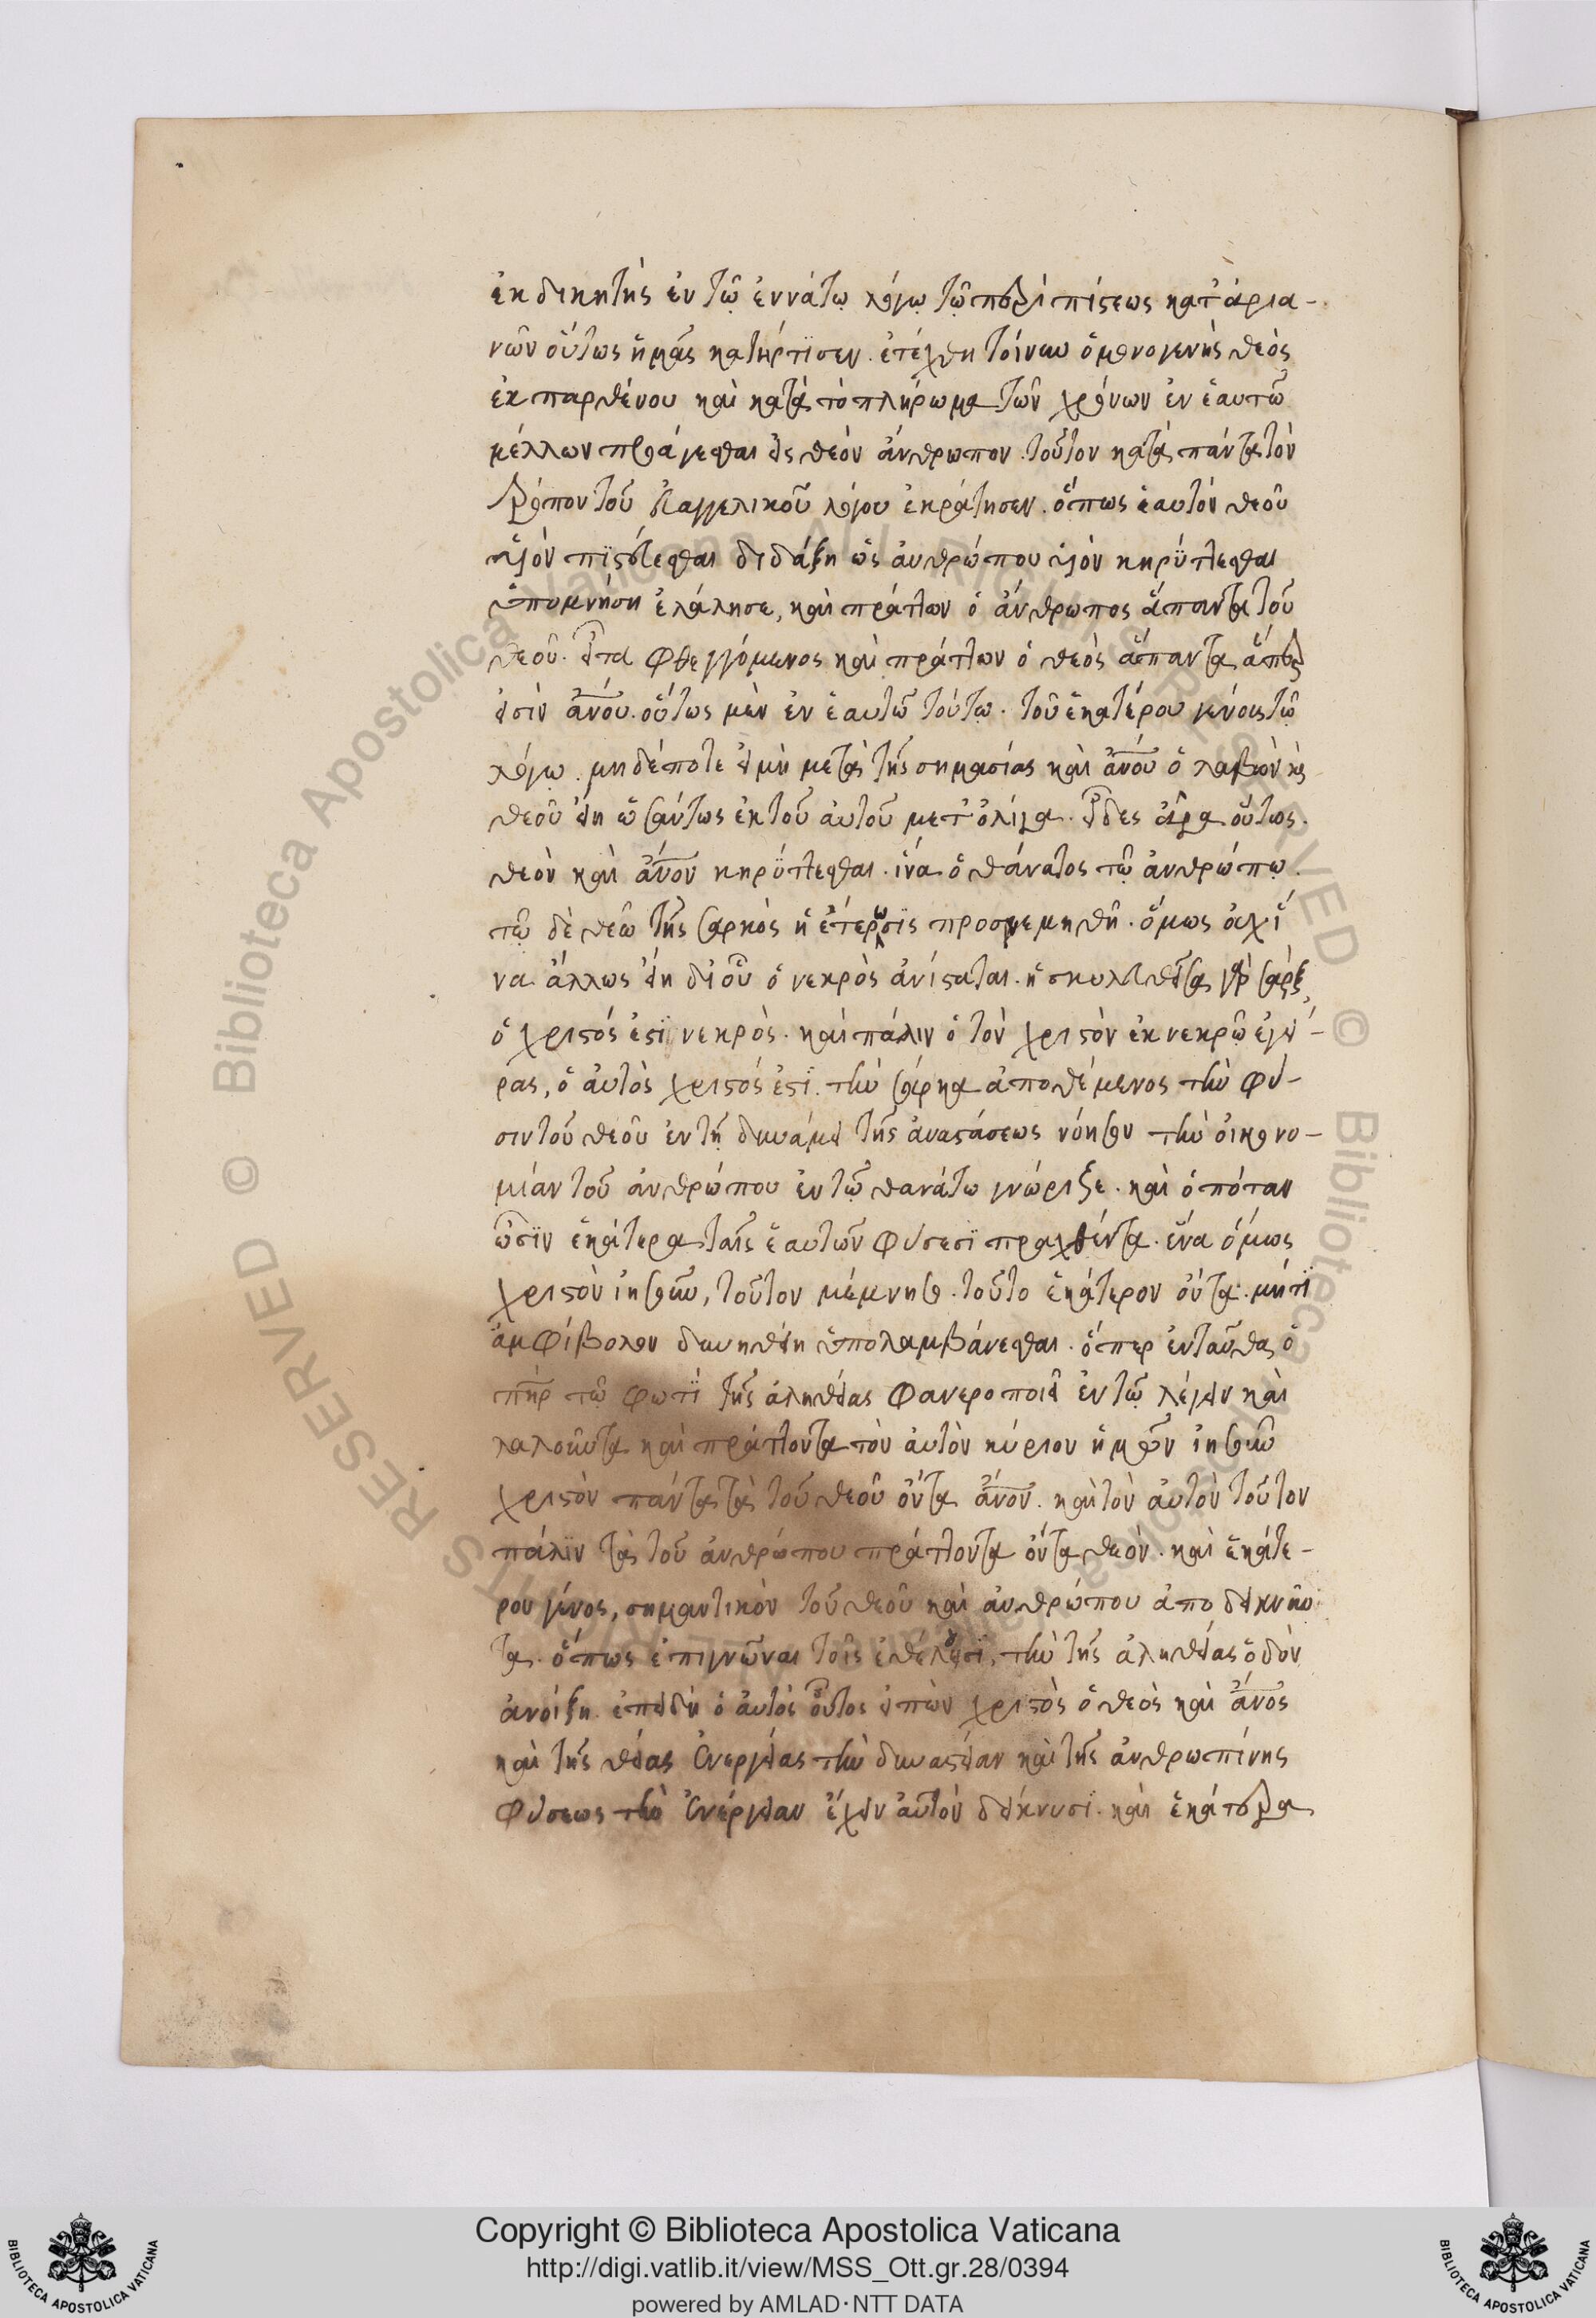 ἐκδικητὴς ἐν τῷ ἐννάτῳ λόγῳ τῷ περὶ πίστεως κατ' ἀρια-
νῶν οὕτως ἡμᾶς κατήρτϊσεν. ἐτέχθη τοίνυν ὁ μονογενὴς θεὸς
ἐκ παρθένου καὶ κατὰ τὸ πλήρωμα τῶν χρόνων ἐν ἑαυτῷ
μέλλων προάγεσθαι εἰς θεὸν ἄνθρωπον. τοῦτον κατὰ πάντα τὸν
τρόπον τοῦ εὐαγγελικοῦ λόγου ἐκράτησεν. ὅπως ἑαυτὸν θεοῦ
υἱὸν πϊστεύεσθαι διδάξη ὡς ἀνθρώπου υἱὸν κηρύττεσθαι
ὑπομνήση ἐλάλησε, καὶ πράττων ὁ ἄνθρωπος ἅπαντα τοῦ
θεοῦ. εἶτα φθεγγόμενος καὶ πράττων ὁ θεὸς ἅπαντα ἅπερ
εἰσὶν ἀνου. οὕτως μὲν ἐν ἑαυτῷ τούτῳ. τοῦ ἑκατέρου γένους τῷ
λόγῳ. μηδέποτε εἰμὴ μετὰ τῆς σημασίας καὶ ἀνου ὁ λαβὼν
θεοῦ εἴη ὡσαύτως ἐκ τοῦ αὐτοῦ μετ' ὀλίγα. εἶδες ἄρα οὕτως.
θεὸν καὶ ἀνον κηρύττεσθαι. ἵνα ὁ θάνατος τῷ ἀνθρώπῳ.
τῷ δὲ θεῷ τῆς σαρκὸς ἡ ἑτέρωσϊς προσνεμηθῆ. ὅμως οὐχὶ
να ἄλλως εἴη δι οὗ ὁ νεκρὸς ἀνίσταται. ἡ σκυλευθεῖσα γὰρ σάρξ,
ὁ χριστός ἐστϊ νεκρὸς. καὶ πάλιν ὁ τὸν χριστὸν ἐκ νεκρῶ ἐγεί-
ρας, ὁ αὐτὸς χριστός ἐστϊ. τὴν σάρκα ἀποθέμενος τὴν φύ-
σιν τοῦ θεοῦ ἐν τῇ δυνάμει τῆς ἀναστάσεως νόησον τὴν οἰκονο-
μίαν τοῦ ἀνθρώπου ἐν τῷ θανάτω γνώριξε. καὶ ὁπόταν
ὦσϊν ἑκάτερα ταῖς ἑαυτῶν φύσεσϊ πραχθέντα. ἕνα ὅμως
χριστὸν ἰησοῦν, τοῦτον μέμνησο. τοῦτο ἑκάτερον ὄντα. μήτϊ
ἀμφίβολον δυνηθείη ὑπολαμβάνεσθαι. ὅπερ ἐνταῦθα ὁ
πηρ τῷ φωτὶ τῆς ἀληθείας φανεροποιεῖ ἐν τῷ λέγειν καὶ
λαλοῦντα καὶ πράττοντα τὸν αὐτὸν κύριον ἡμῶν ἰησοῦν
χριστὸν πάντα τὰ τοῦ θεοῦ ὄντα ἀνον. καὶ τὸν αὐτὸν τοῦτον
πάλϊν τὰ τοῦ ἀνθρώπου πράττοντα ὄντα θεὸν. καὶ ἑκάτε-
ρον γένος, σημαντικὸν τοῦ θεοῦ καὶ ἀνθρώπου ἀποδεικνῦν
τα. ὅπως ἐπιγνῶναι τοῖς ἐθέλουσϊ, τὴν τῆς ἀληθείας ὁδὸν
ἀνοίξη. ἐπειδὴ ὁ αὐτός οὗτος εἰπὼν χριστὸς ὁ θεὸς καὶ ἀνος
καὶ τῆς θείας ἐνεργείας τὴν δυναστείαν καὶ τῆς ἀνθρωπίνης
φύσεως τὴν ἐνέργειαν ἔχειν αὐτὸν δείκνυσϊ. καὶ ἑκάτερα
Copyright © Biblioteca Apostolica Vaticana
http://digi.vatlib.it/view/MSS_Ott.gr.28/0394
powered by AMLAD·NTT DATA